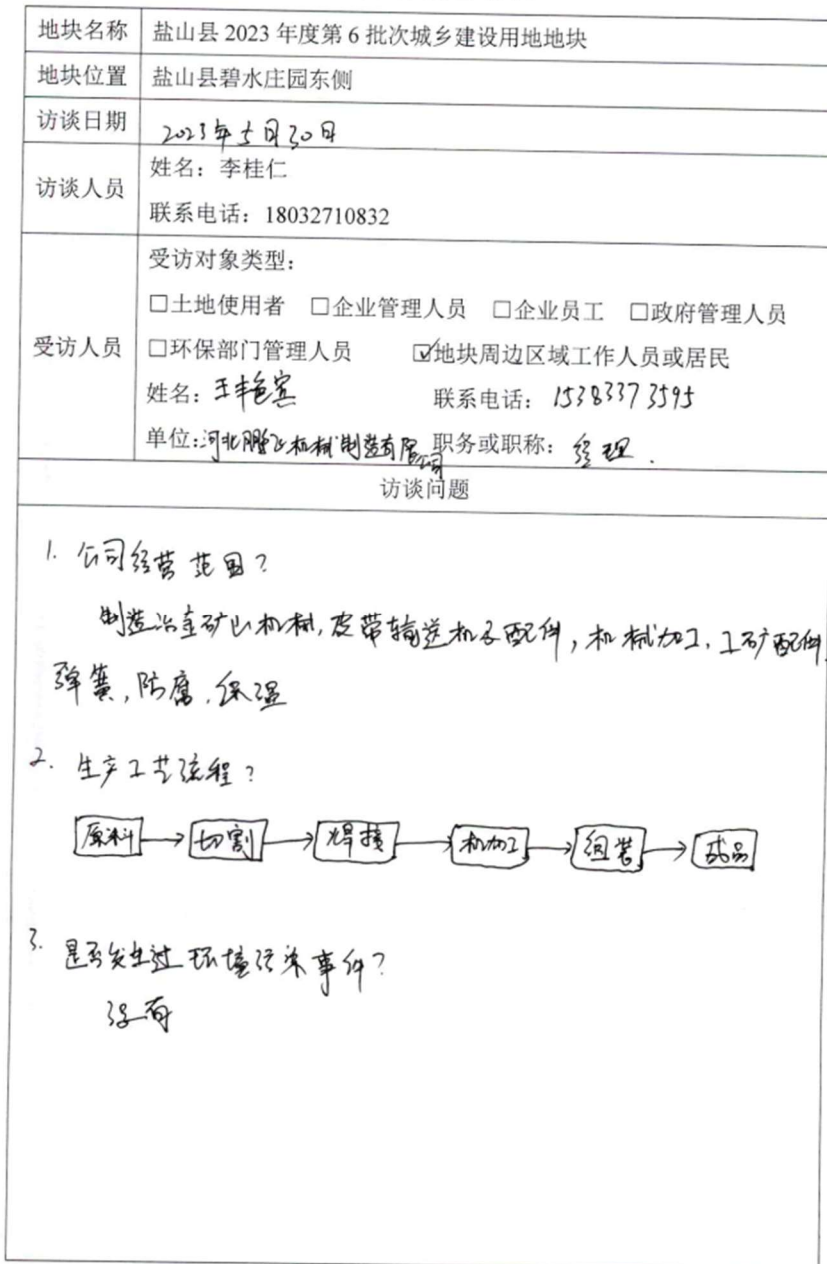 地块名称 盐山县 2023 年度第 6 批次城乡建设用地地块
地块位置 盐山县碧水庄园东侧
访谈日期 2023年5月30日
访谈人员 姓名：李桂仁
联系电话：18032710832
受访人员 受访对象类型：
□土地使用者 □企业管理人员 □企业员工 □政府管理人员
□环保部门管理人员 ☑地块周边区域工作人员或居民
姓名：王艳宾 联系电话：15383373595
单位:河北鹏飞机械制造有限公司 职务或职称：经理.
访谈问题
1. 公司经营范围?
制造冶金矿山机械,皮带输送机及配件,机械加工,工矿配件,
弹簧,防腐.保温
2. 生产工艺流程?
原料→切割→焊接→机加工→组装→成品
3. 是否发生过环境污染事件?
没有